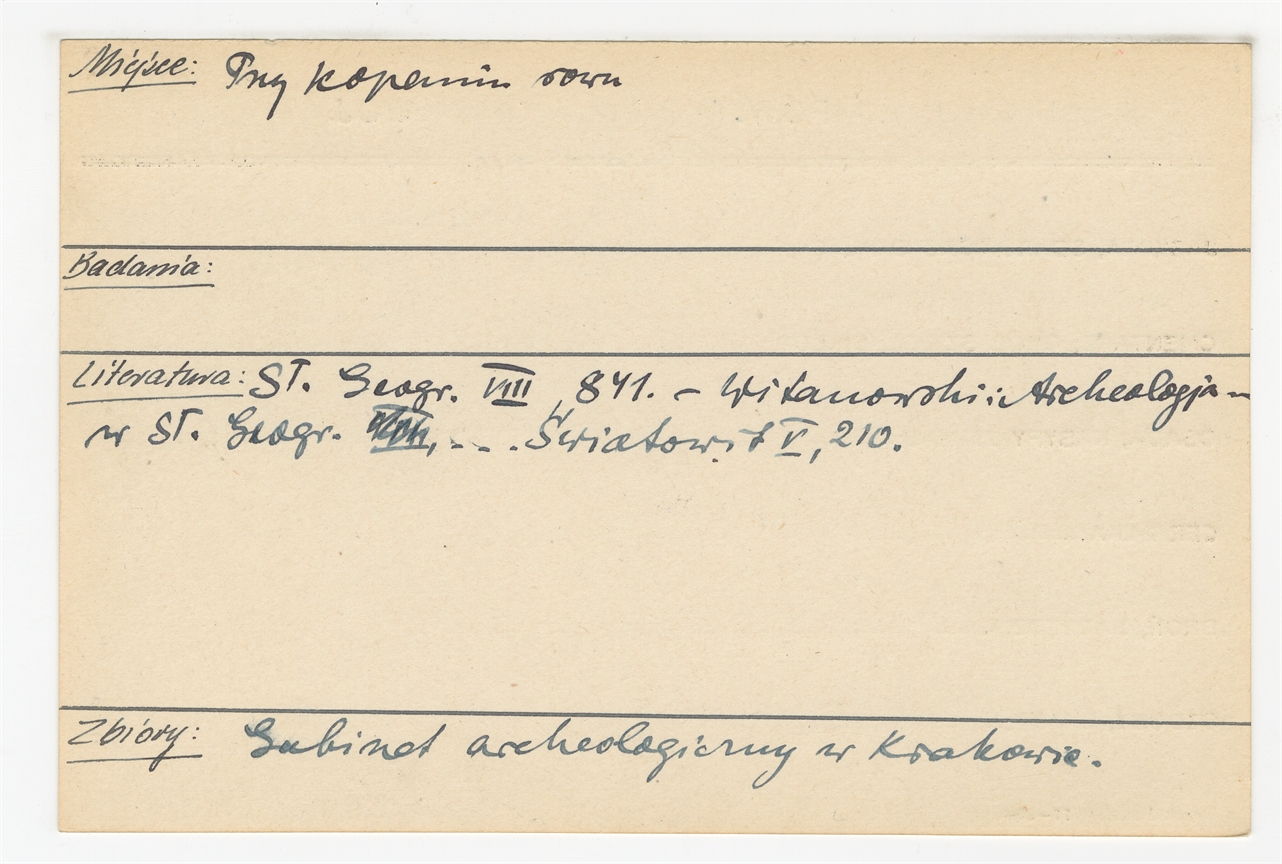 Miejsce: Przy kopaniu rowu
Badania:
Literatura: Sł. Geogr. VIII, 841. – Witanowski: Archeologja –
w Sł. Geogr. - - - . Światowit V, 210.
Zbiory: Gabinet archeologiczny w Krakowie.